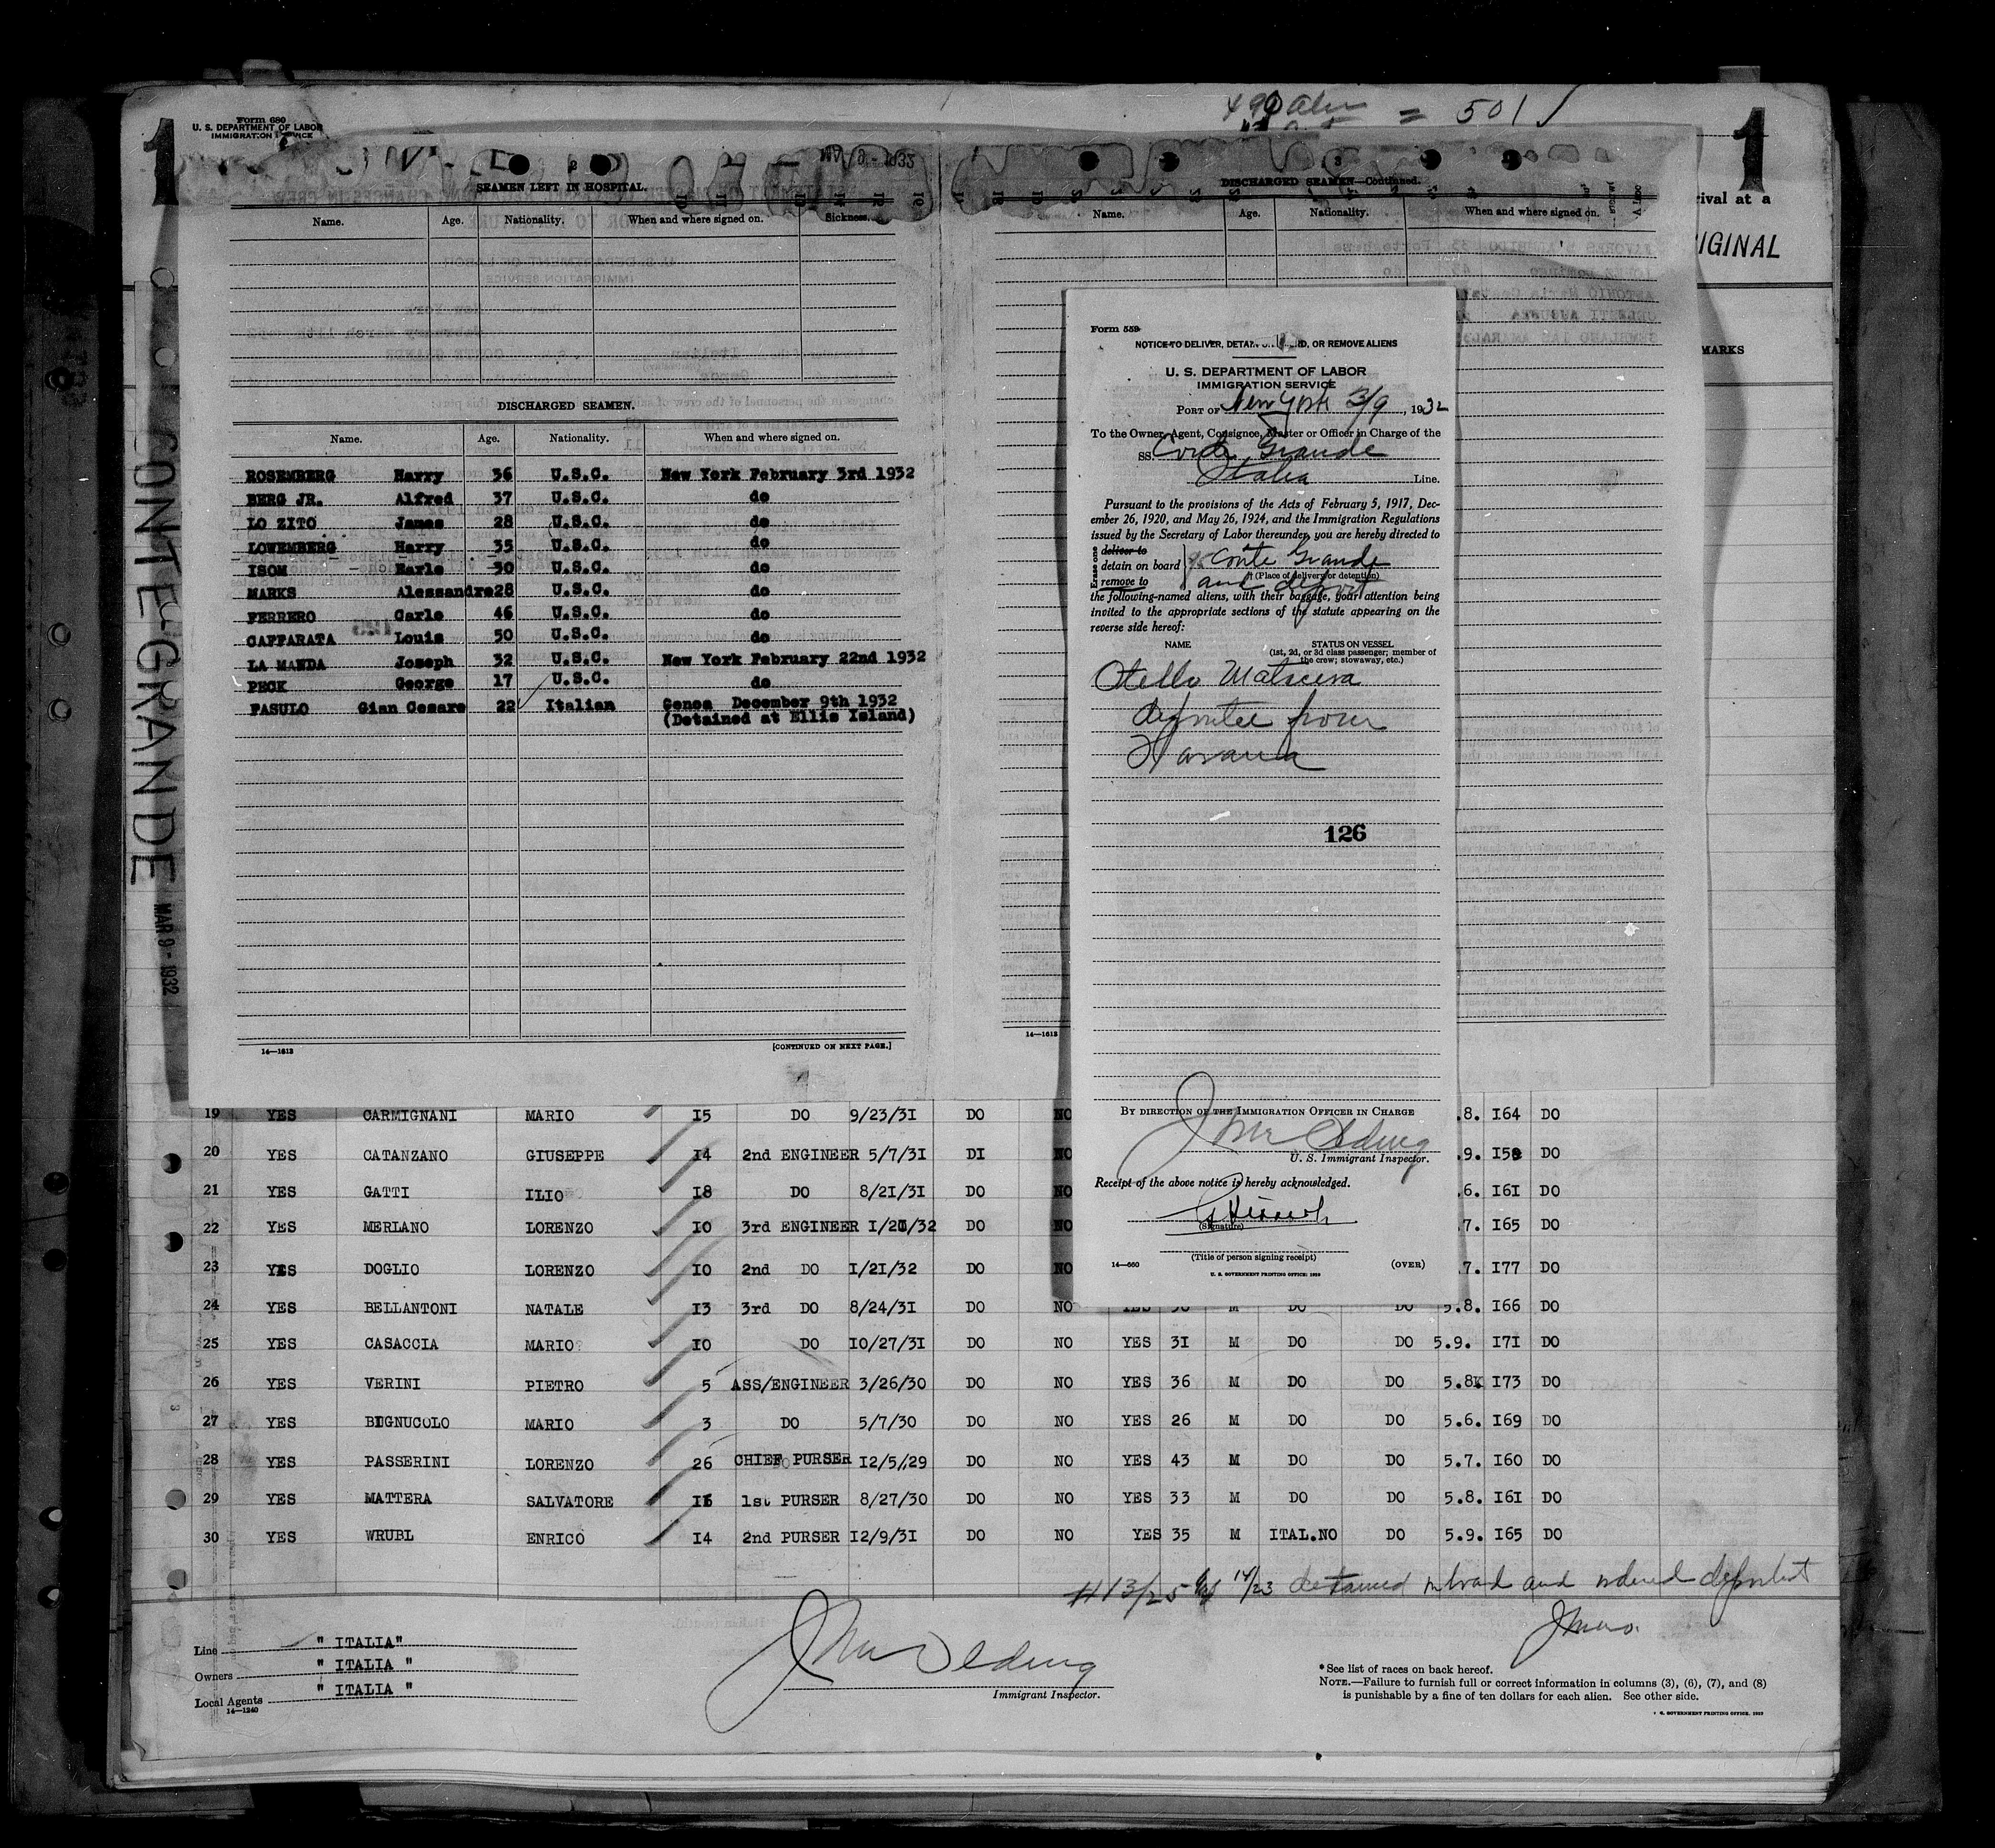 1
Form 680
U. S. DEPARTMENT OF LABOR
IMMIGRATION SERVICE
= 501
1
rival at a
IGINAL
MARKS
CONTE-GRANDE
MAR 9 - 1932
2
SEAMEN LEFT IN HOSPITAL.
Name. Age. Nationality. When and where signed on. Sickness.
DISCHARGED SEAMEN.
Name. Age. Nationality. When and where signed on.
ROSEMBERG Harry 36 U.S.C. New York February 3rd 1932
BERG JR. Alfred 37 U.S.C. do
LO ZITO James 28 U.S.C. do
LOWEMBERG Harry 35 U.S.C. do
ISOM Earle 30 U.S.C. do
MARKS Alessandre 28 U.S.C. do
FERRERO Carlo 46 U.S.C. do
CAFFARATA Louis 50 U.S.C. do
LA MANDA Joseph 32 U.S.C. New York February 22nd 1932
PECK George 17 U.S.C. do
FASULO Gian Cesare 22 Italian Genoa December 9th 1932
(Detained at Ellis Island)
14—1613
[CONTINUED ON NEXT PAGE.]
3
DISCHARGED SEAMEN—Continued.
Name. Age. Nationality. When and where signed on.
14—1613
Form 559
NOTICE TO DELIVER, DETAIN ON BOARD, OR REMOVE ALIENS
U. S. DEPARTMENT OF LABOR
IMMIGRATION SERVICE
PORT OF New York 3/9, 1932
To the Owner, Agent, Consignee, Master or Officer in Charge of the
SS. Conte Grande
Italia Line.
Pursuant to the provisions of the Acts of February 5, 1917, Dec-
ember 26, 1920, and May 26, 1924, and the Immigration Regulations
issued by the Secretary of Labor thereunder, you are hereby directed to
Erase one
deliver to
detain on board
remove to
Conte Grande
(Place of delivery or detention)
and deport
the following-named aliens, with their baggage, your attention being
invited to the appropriate sections of the statute appearing on the
reverse side hereof:
NAME STATUS ON VESSEL
(1st, 2d, or 3d class passenger; member of
the crew; stowaway, etc.)
Otello
deportee from
Havana
126
BY DIRECTION OF THE IMMIGRATION OFFICER IN CHARGE
U. S. Immigrant Inspector.
Receipt of the above notice is hereby acknowledged.
(Signature)
(Title of person signing receipt)
14—660
(OVER)
U. S. GOVERNMENT PRINTING OFFICE: 1929
19 YES CARMIGNANI MARIO 15 DO 9/23/31 DO NO .8. 164 DO
20 YES CATANZANO GIUSEPPE 14 2nd ENGINEER 5/7/31 DI NO .9. 158 DO
21 YES GATTI ILIO 18 DO 8/21/31 DO NO .6. 161 DO
22 YES MERLANO LORENZO 10 3rd ENGINEER 1/21/32 DO NO .7. 165 DO
23 YES DOGLIO LORENZO 10 2nd DO 1/21/32 DO NO .7. 177 DO
24 YES BELLANTONI NATALE 13 3rd DO 8/24/31 DO NO YES M DO DO 5.8. 166 DO
25 YES CASACCIA MARIO 10 DO 10/27/31 DO NO YES 31 M DO DO 5.9. 171 DO
26 YES VERINI PIETRO 5 ASS/ENGINEER 3/26/30 DO NO YES 36 M DO DO 5.8 173 DO
27 YES BIGNUCOLO MARIO 3 DO 5/7/30 DO NO YES 26 M DO DO 5.6. 169 DO
28 YES PASSERINI LORENZO 26 CHIEF PURSER 12/5/29 DO NO YES 43 M DO DO 5.7. 160 DO
29 YES MATTERA SALVATORE 16 1st PURSER 8/27/30 DO NO YES 33 M DO DO 5.8. 161 DO
30 YES WRUBL ENRICO 14 2nd PURSER 12/9/31 DO NO YES 35 M ITAL.NO DO 5.9. 165 DO
#13/25 14/23 detained on board and ordered deported
Line " ITALIA"
Owners " ITALIA "
Local Agents " ITALIA "
14—1240
Immigrant Inspector.
*See list of races on back hereof.
NOTE.—Failure to furnish full or correct information in columns (3), (6), (7), and (8)
is punishable by a fine of ten dollars for each alien. See other side.